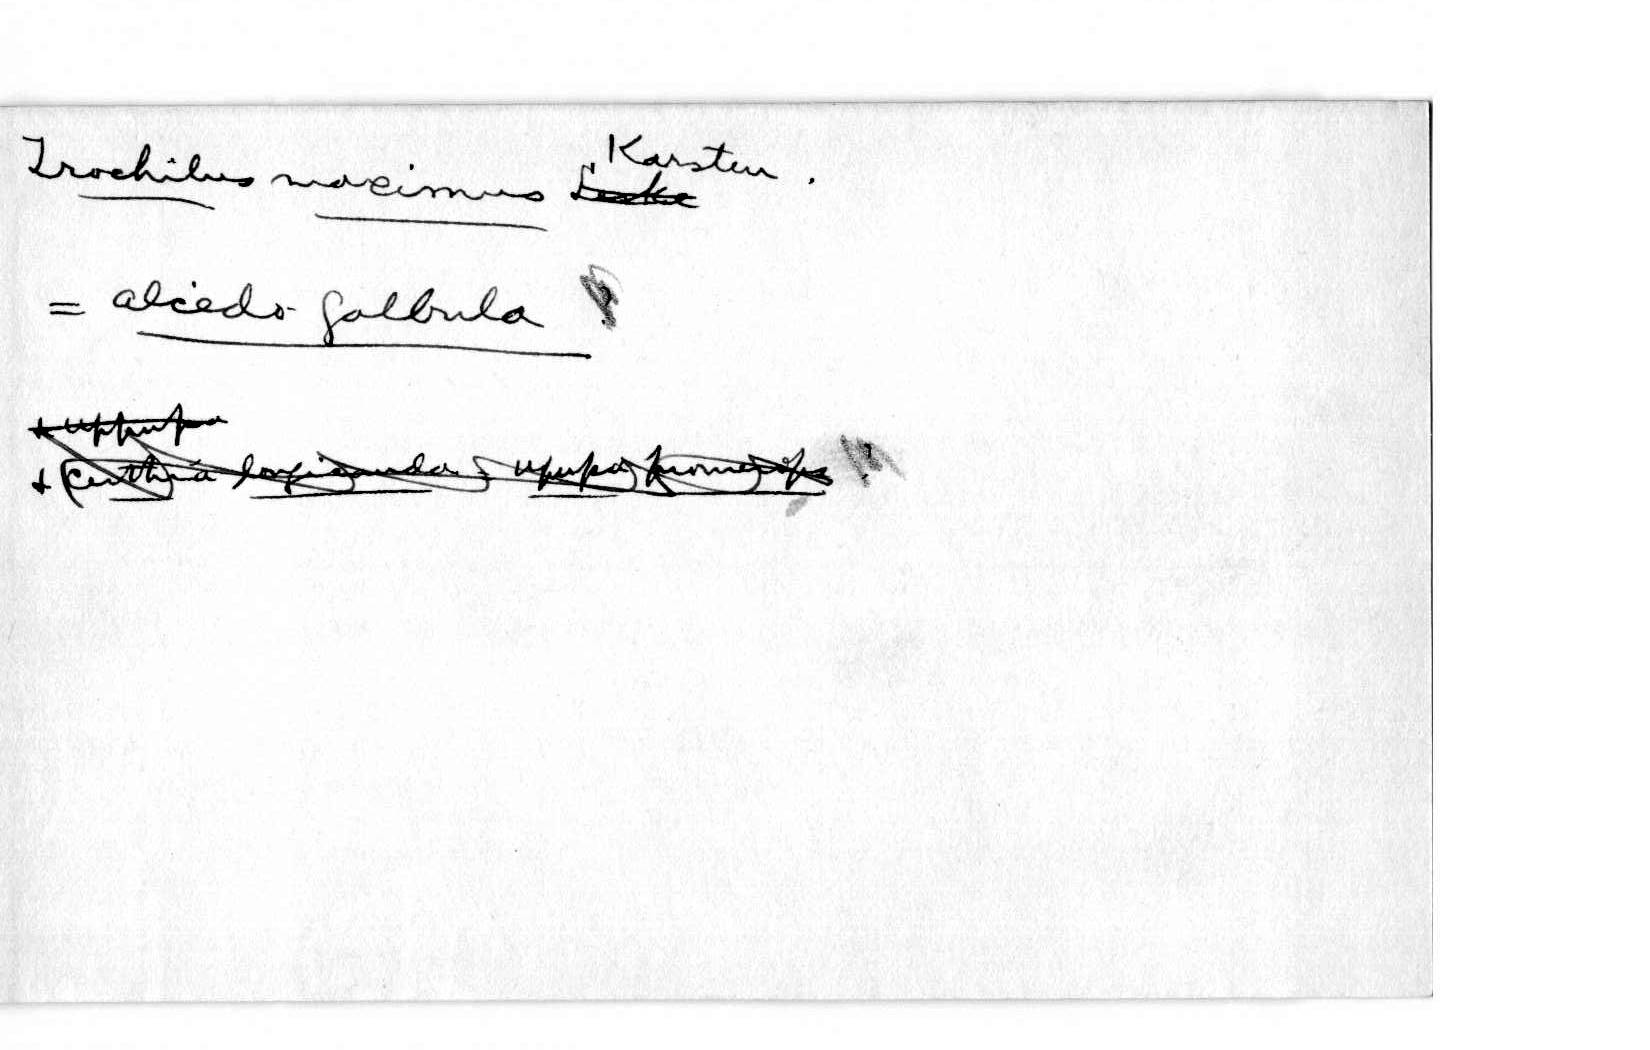 Trochilus maximus Leske Karsten.
= alcedo galbula
+ Uppupa
+ (Certhia longicauda = Upupa promerops